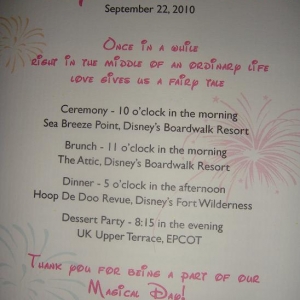 September 22, 2010
Once in a while
right in the middle of an ordinary life
love gives us a fairy tale
Ceremony - 10 o'clock in the morning
Sea Breeze Point, Disney's Boardwalk Resort
Brunch - 11 o'clock in the morning
The Attic, Disney's Boardwalk Resort
Dinner - 5 o'clock in the afternoon
Hoop De Doo Revue, Disney's Fort Wilderness
Dessert Party - 8:15 in the evening
UK Upper Terrace, EPCOT
Thank you for being a part of our
Magical Day!